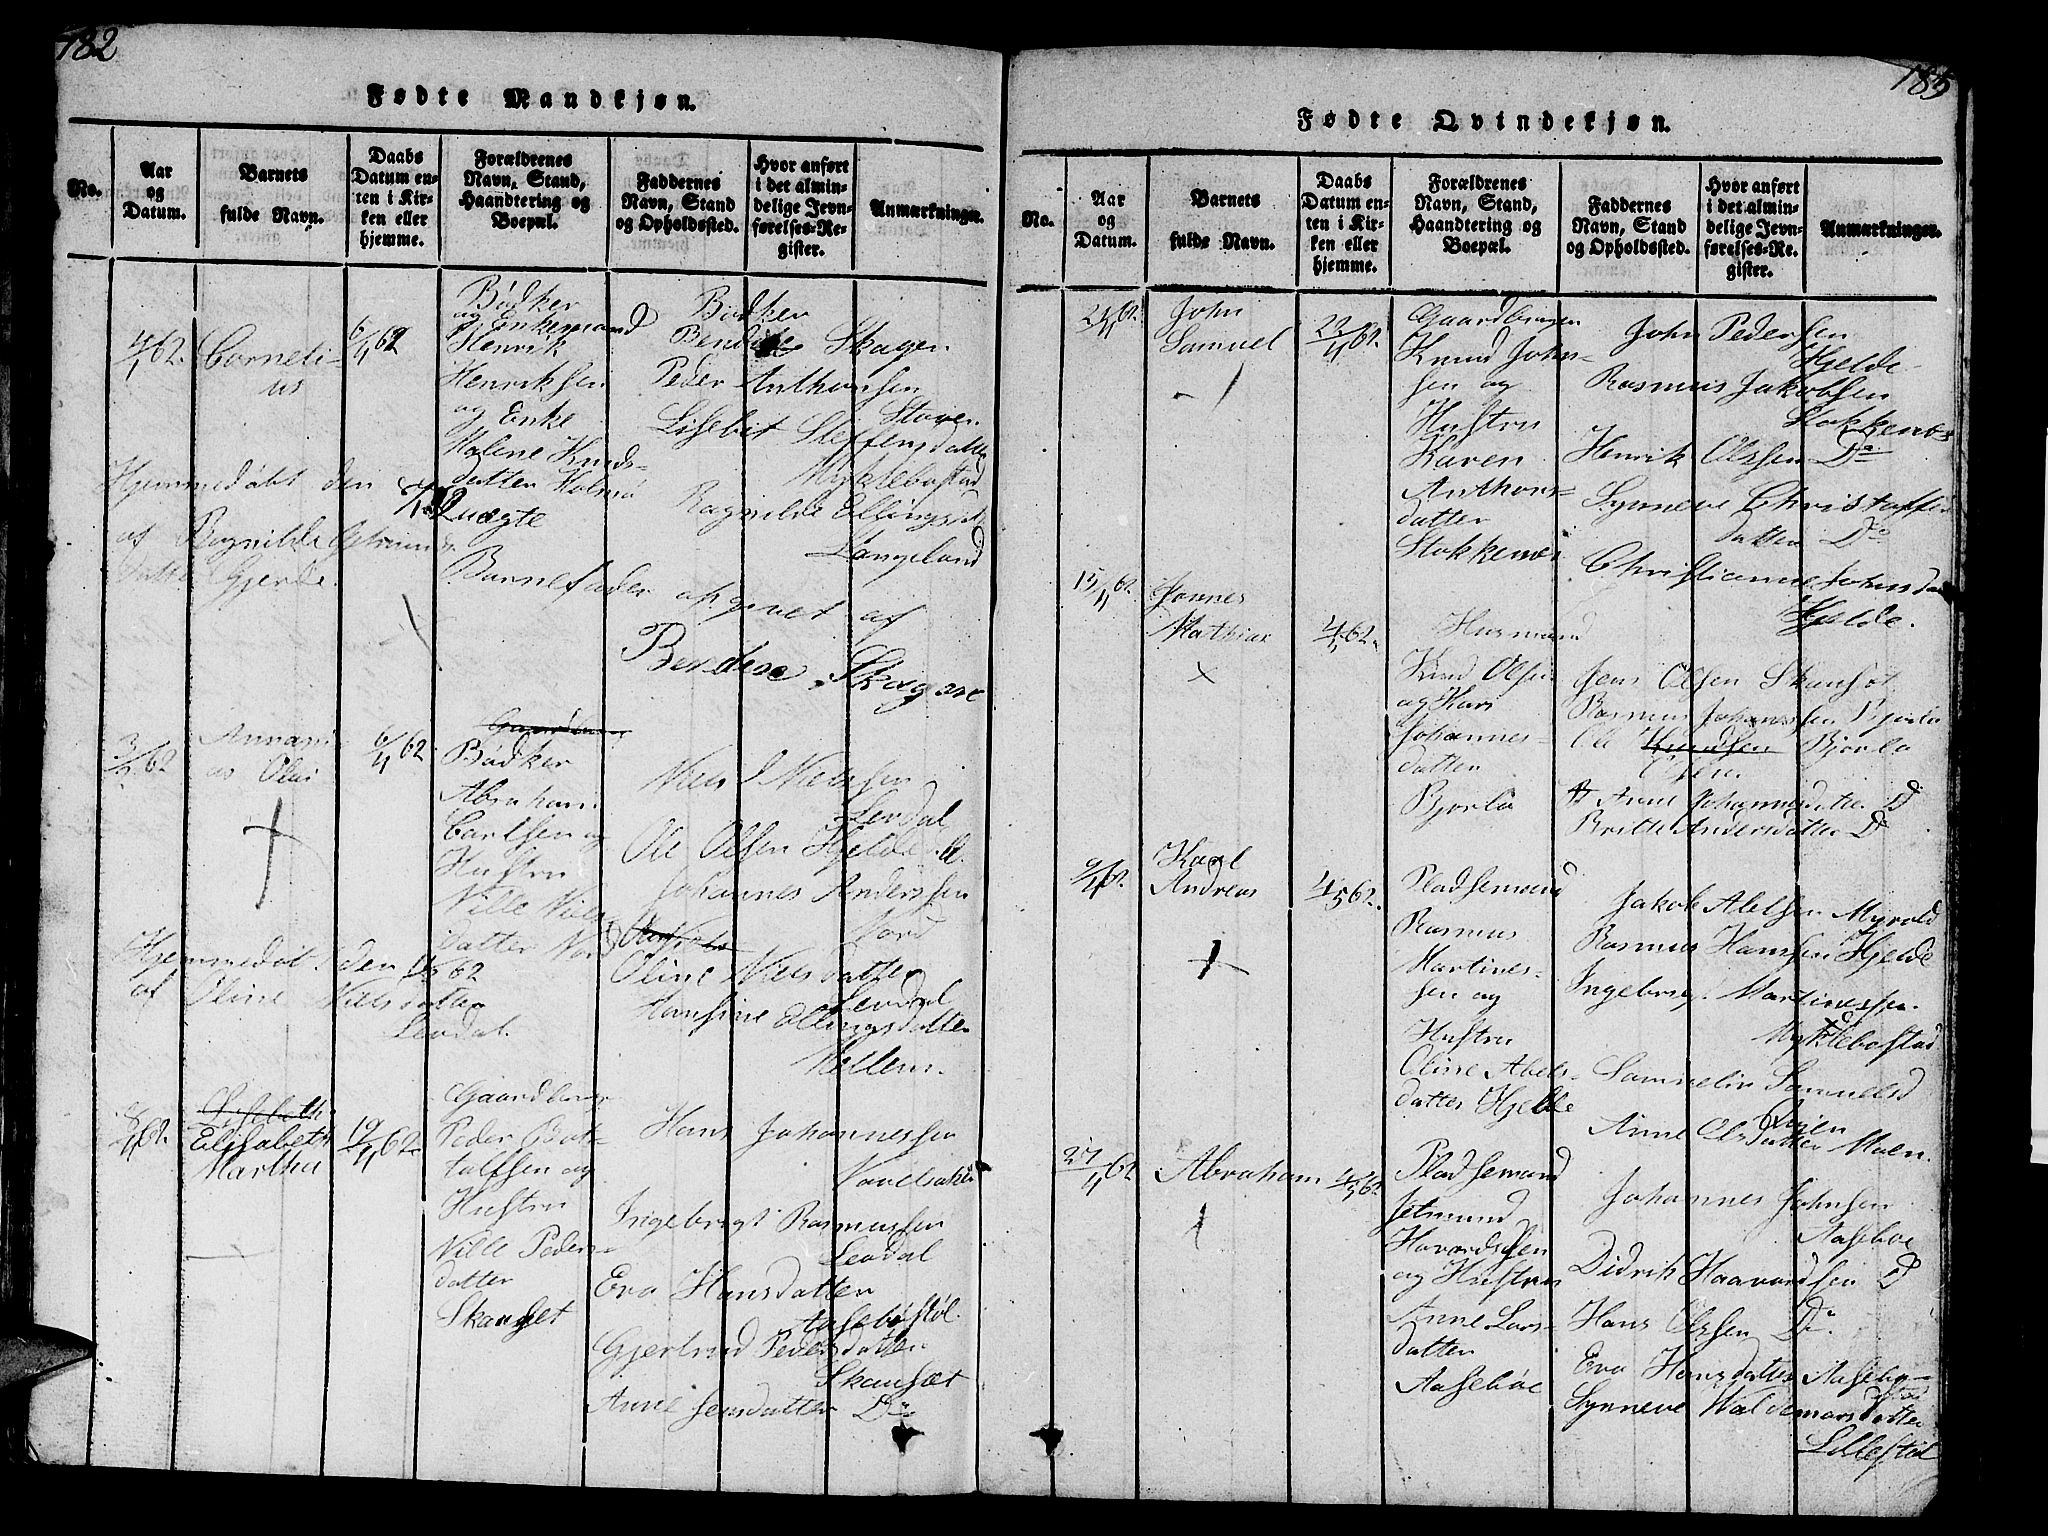 182
Fødte Mandkjøn.
No.
Aar
og
Datum.
Barnets
fulde Navn.
Daabs
Datum en-
ten i Kir-
ken eller
hjemme.
Forældrenes
Navn, Stand,
Haandtering og
Boepæl.
Faddernes
Navn, Stand
og Opholdssted.
Hvor anført
i det almin-
delige Jevn-
førelses-Re-
gister.
Anmærkninger.
4/1 62.
Corneli-
us
6/4 62
Bødker
og Enkemand
Henrik
Henriksen
og Enke
Malene Knuds-
datter Holmø
Bødker
Skagen
Peder Anthonsen
Støven
Lisebet Steffensdatter
Myklebostad
Ragnilde Ellingsd
Langeland
Hjemmedøbt den
af Ragnilde
datter Gjerde.
Barnefader opgivet af
Bendix Skagene
3/3 62
Annani-
as Olai
6/4 62
Bødker
Abraham
Carlsen og
Hustru
Nille Niels
datter Nord
Niels Nielssen
Levdal
Ole Olsen Hjelde
Johannes Anderssen
Nord
Oline Nielsdatter
Levdal
Hansine Ellingsdatter
Mellem.
Hjemmedøt den
af Oline Nielsdatter
Levdal.
4 62.
Lisebeth
Elisabeth
Martha
19/4 62
Gaardbruger
Peder Bot-
tolfsen og
Hustru
Nille Peders-
datter
Skanset
Hans Johannessen
Navelsaker
Ingebrigt Rasmussen
Levdal
Eva Hansdatter
Aasebøstøl
Gjertrud Pedersdatter
Skanset
Anne Jensdatter Do
183
Fødte Qvindekjøn.
No.
Aar
og
Datum.
Barnets
fulde Navn.
Daabs
Datum en-
ten i Kir-
ken eller
hjemme.
Forældrenes
Navn, Stand,
Haandtering og
Boepæl.
Faddernes
Navn, Stand
og Opholdssted.
Hvor anført
i det almin-
delige Jevn-
førelses-Re-
gister.
Anmærkninger.
62.
John
Samuel
4 62.
Gaardbruger
Knud John-
sen og
Hustru
Karen
Anthons-
datter
Stokkenes
John Pedersen
Hjelde
Rasmus Jakobsen
Stokkenes
Henrik Olssen Do
Synneve Christoffers
datter Do
Christianne Johnsda
Hjelde.
15/4 62.
Hannes
Mathias
4/5 62.
Husmand
Knud Olsen
og Kari
Johannes-
datter
Bjorlo
Jens Olsen Skanset
Rasmus Johanssen Bjorlo
Ole Knudsen Bjorlo
Anne Johannesdatter D
Britte Andersdatter Do
Karl
Andreas
4/5 62.
Pladsemand
Rasmus
Martines-
sen og
Hustru
Oline Abels-
datter Hjelde
Jakob Abelsen Myrold
Rasmus Hansen Hjelde
Ingeborg Martinessen
Myklebostad
Samueline Samuelsd
Anne Olsdatter Moen.
27/4 62
Abraham
4/5 62
Pladsemand
Jetmund
Havardssen
og Hustru
Anne Lars-
datter
Aasebøe
Johannes Johnsen
Aasebøe
Didrik Haavardsen D
Hans Olssen Do
Eva Hansdatter Aasebø
Synneve Waldemarsdatter
Lillestøl